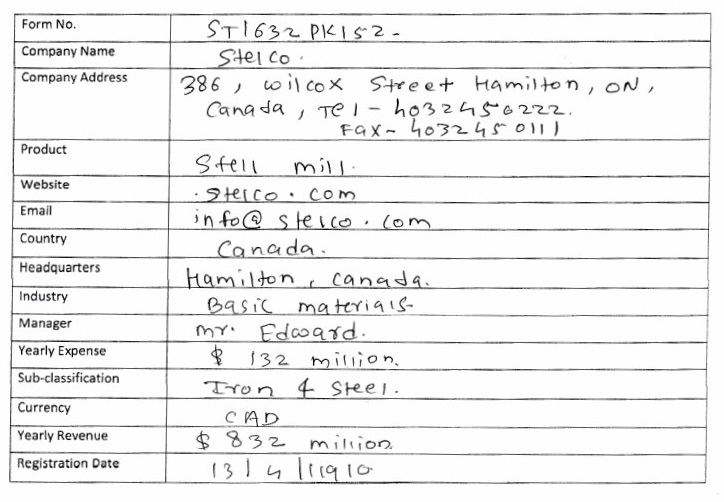 Form No. ST1632PK152-
Company Name Stelco.
Company Address 386, wilcox Street Hamilton, ON,
Canada, Tel - 4032450222.
Fax - 4032450111
Product Stell mill.
Website .stelco.com
Email info@stelco.com
Country Canada.
Headquarters Hamilton, Canada.
Industry Basic materials
Manager mr. Edward.
Yearly Expense $ 132 million.
Sub-classification Iron & Steel.
Currency CAD
Yearly Revenue $ 832 million
Registration Date 13/4/1910